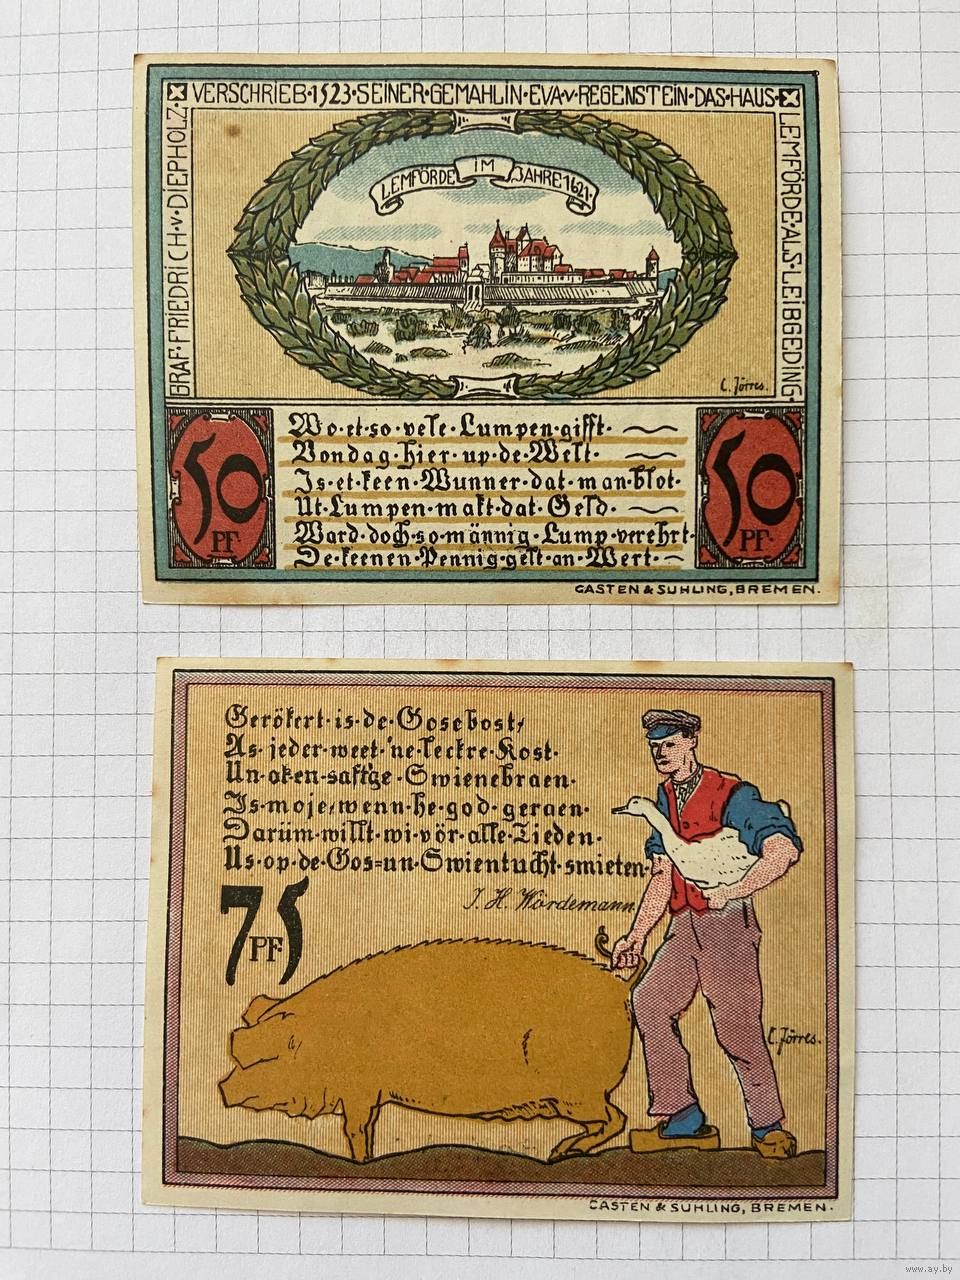 BRAF·FRIEDRICH·v·DIEPHOLZ·
VERSCHRIEB·1523·SEINER·GEMAHLIN·EVA·v·REGENSTEIN·DAS·HAUS·
LEMFÖRDE·ALS·LEIBGEDING·
LEMFÖRDE IM JAHRE 1621·
C. Jörres.
50 PF·
Wo·et·so·vele·Lumpen·gifft·
Vondag·hier·up·de·Welt·
Is·et·keen·Wunner·dat·man·blot·
Ut·Lumpen·makt·dat·Geld·
Ward·doch·so·männig·Lump·verehrt·
De·keenen·Pennig·gelt·an·Wert·
50 PF·
CASTEN & SUHLING, BREMEN.
Gerökert·is·de·Gosebost,
As·jeder·weet·'ne·leckre·Kost·
Un·oken·saft'ge·Swienebraen·
Is·moje,wenn·he·god·geraen·
Darüm·willt·wi·vör·alle·Tieden·
Us·op·de·Gos=un·Swientucht·smieten·
J. H. Wördemann
75 PF·
C. Jörres.
CASTEN & SUHLING, BREMEN.
www.ay.by